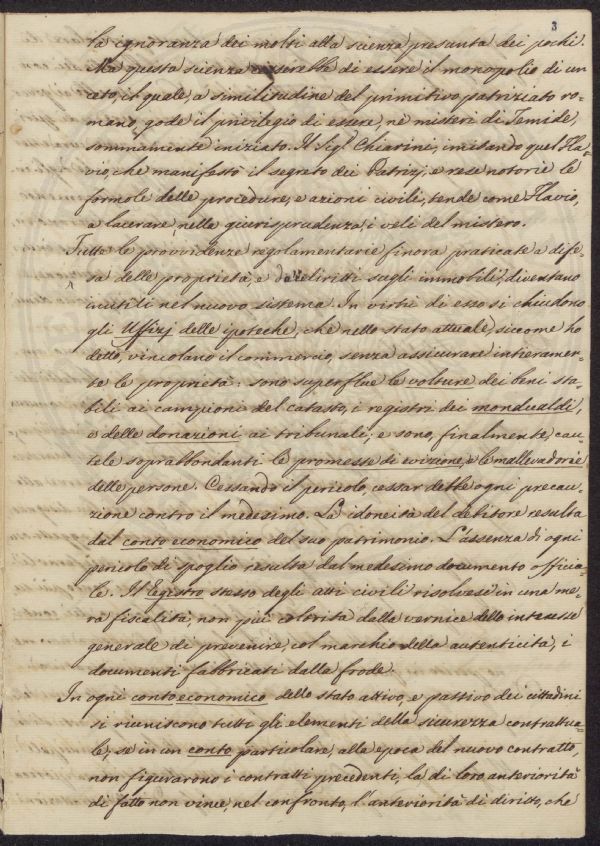 3
la ignoranza dei molti alla scienza presunta dei pochi.
Ma questa scienza cesserebbe di essere il monopolio di un
ceto, il quale, a similitudine del primitivo patriziato ro=
mano, gode il privilegio di essere, ne' misteri di Temide,
sommamente iniziato. Il Sigr. Chiarini, imitando quel Fla=
vio, che manifestò il segreto dei Patrizj, e rese notorie le
formole delle procedure, e azioni civili, tende come Flavio,
a lacerare, nella giurisprudenza, i veli del mistero.
Tutte le provvidenze regolamentarie finora praticate a dife=
sa delle proprietà, e dei diritti sugli immobili, diventano
inutili nel nuovo sistema. In virtù di esso si chiudono
gli Uffizj delle ipoteche, che nello stato attuale, siccome ho
detto, vincolano il commercio, senza assicurare intieramen=
te le proprietà: sono superflue le volture dei beni sta=
bili ai campioni del catasto, i registri dei mondualdi,
e delle donazioni ai tribunali; e sono, finalmente, cau=
tele soprabbondanti le promesse di evizione, e le mallevadorie
delle persone. Cessando il pericolo, cessar debbe ogni precau=
zione contro il medesimo. La idoneità del debitore resulta
dal conto economico del suo patrimonio. L'assenza di ogni
pericolo di spoglio resulta dal medesimo documento officia=
le. Il Registro stesso degli atti civili risolvesi in una me=
ra fiscalità, non più colorita dalla vernice dello interesse
generale di prevenire, col marchio della autenticità, i
documenti fabbricati dalla frode.
In ogni conto economico dello stato attivo, e passivo dei cittadini
si riuniscono tutti gli elementi della sicurezza contrattua=
le, se in un conto particolare, alla epoca del nuovo contratto,
non figurarono i contratti precedenti, la di loro anteriorità
di fatto non vince, nel confronto, l'anteriorità di diritto, che